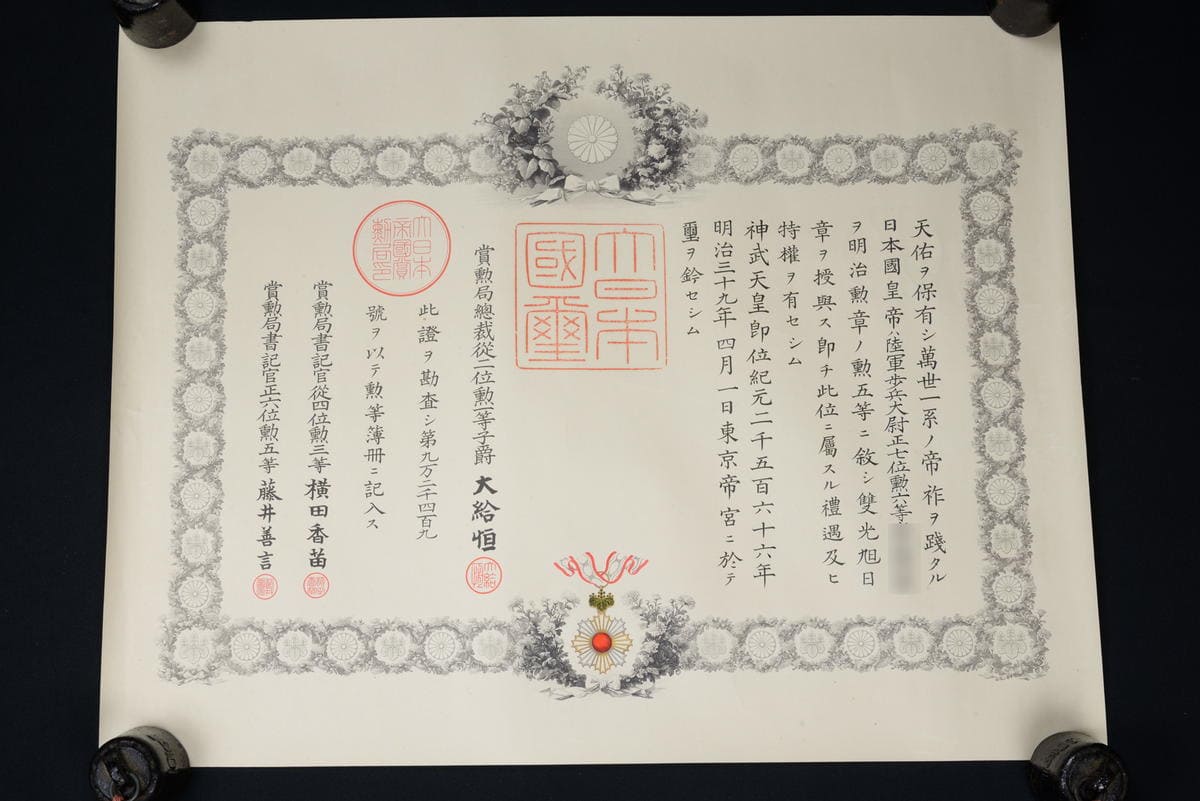 天佑ヲ保有シ萬世一系ノ帝祚ヲ踐タル
日本國皇帝ハ陸軍歩兵大尉正七位勲六等
ヲ明治勲章ノ勲五等ニ敘シ雙光旭日
章ヲ授與ス即チ此位ニ屬スル禮遇及ヒ
特權ヲ有セシム
神武天皇即位紀元二千五百六十六年
明治三十九年四月一日東京帝宮ニ於テ
璽ヲ鈐セシム
大日本國璽
賞勲局總裁從二位勲一等子爵大給恒
此證ヲ勘査シ第九万二千四百九
號ヲ以テ勲等簿册ニ記入ス
大日本帝國賞勲局印
賞勲局書記官從四位勲三等横田香苗
賞勲局書記官正六位勲五等藤井善言